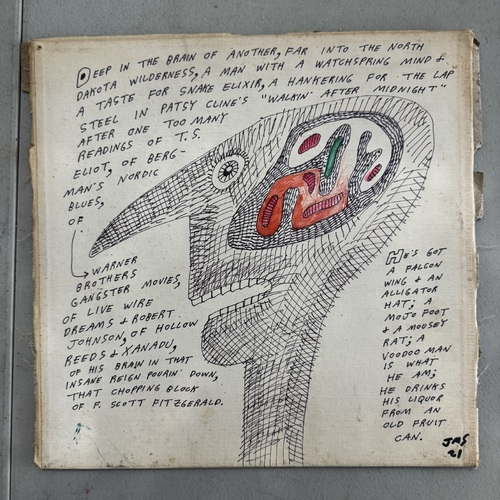 DEEP IN THE BRAIN OF ANOTHER, FAR INTO THE NORTH
DAKOTA WILDERNESS, A MAN WITH A WATCHSPRING MIND &
A TASTE FOR SNAKE ELIXIR, A HANKERING FOR THE LAP
STEEL IN PATSY CLINE'S "WALKIN' AFTER MIDNIGHT"
AFTER ONE TOO MANY
READINGS OF T.S.
ELIOT, OF BERG-
MAN'S NORDIC
BLUES,
OF
WARNER
BROTHERS
GANGSTER MOVIES,
OF LIVE WIRE
DREAMS & ROBERT
JOHNSON, OF HOLLOW
REEDS & XANADU,
OF HIS BRAIN IN THAT
INSANE REIGN POURIN' DOWN,
THAT CHOPPING BLOCK
OF F. SCOTT FITZGERALD.
HE'S GOT
A FALCON
WING & AN
ALLIGATOR
HAT; A
MOJO FOOT
& A MOUSEY
RAT; A
VOODOO MAN
IS WHAT
HE AM;
HE DRINKS
HIS LIQUOR
FROM AN
OLD FRUIT
CAN.
JMS
21